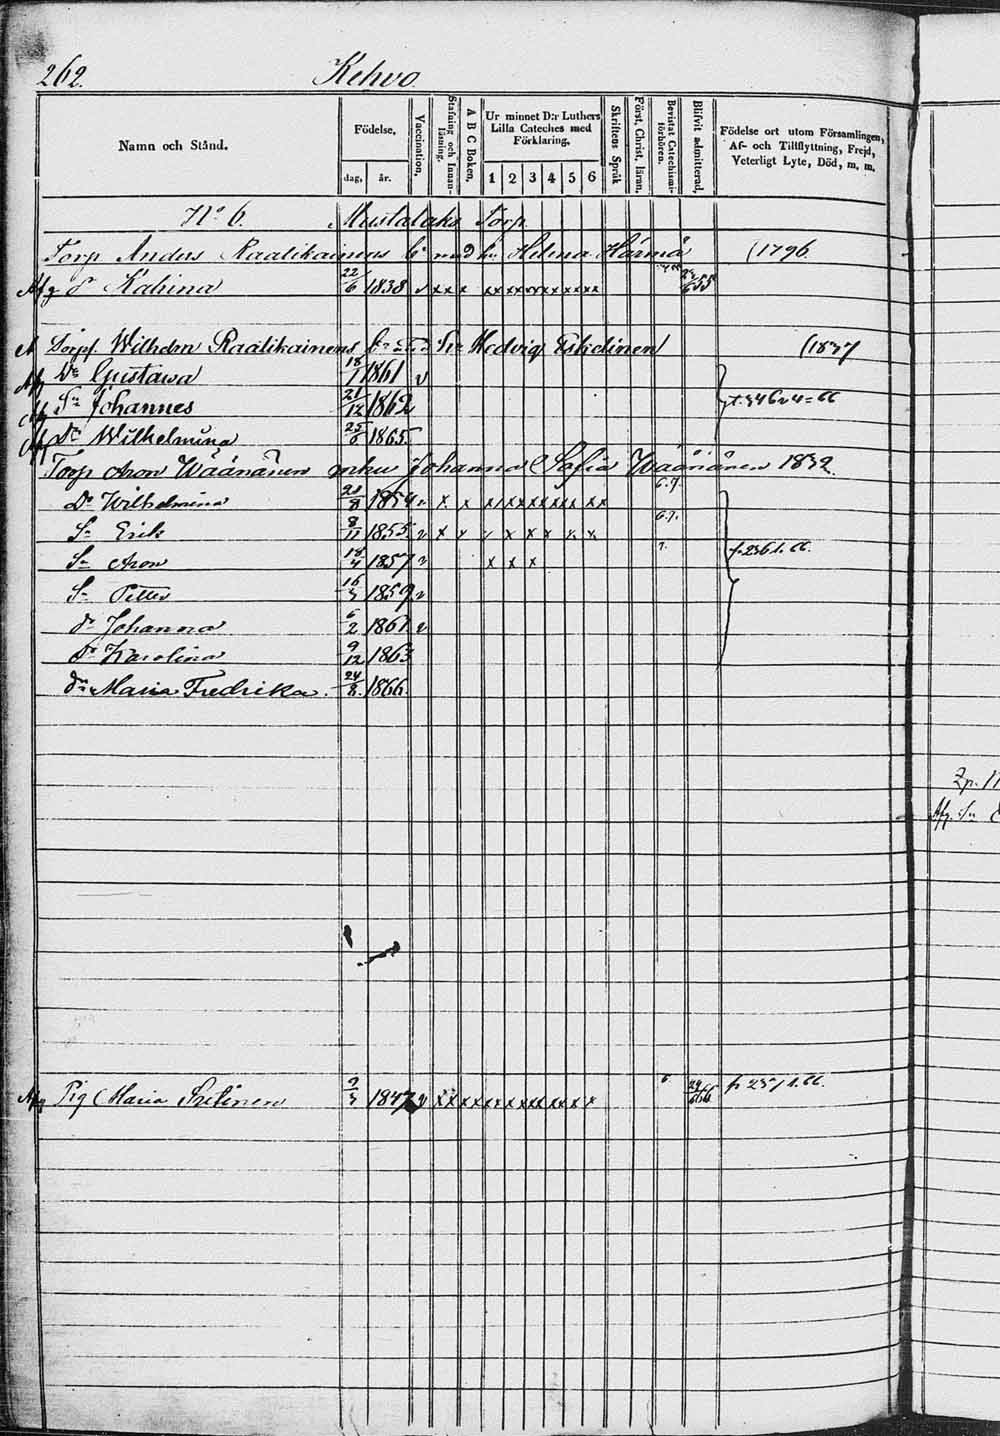 262. Kehvo
Namn och Stånd. Födelse, dag, år. Vaccination, Stafning och Innanläsning. A B C Boken, Ur minnet D:r Luthers Lilla Cateches med Förklaring, 1 2 3 4 5 6 Skriftens Språk Först. Christ. läran, Bevistat Catechismiförhören. Blifvit admitterad, Födelse ort utom Församlingen, Af- och Tillflyttning, Frejd, Veterligt Lyte, Död, m. m.
No 6. Mustalaks Torp
Torp Anders Raatikainens med Helena Härmä (1796
Afg dr Kahina 22/6 1838 v x x x x x x x x x x x x x 55
Torpf. Wilhelm Raatikainens Hedvig Eskelinen (1837
Afg Dr Gustawa 18/1 1861 v
Afg Sn Johannes 21/12 1862
Afg Dr Wilhelmina 25/6 1865
Torp Aron Wäänänen enka Johanna Sofia Wäänänen 1832.
Dr Wilhelmina 21/8 1854 v x x x x x x x x x x x x 6.7.
Sn Erik 8/11 1855 v x x x x x x x x 6.7.
Sn Aron 18/4 1857 v x x x 7. fr 236 1. 66.
Sn Petter 16/3 1859 v
dr Johanna 6/2 1861 v
dr Karolina 9/12 1863
dr Maria Fredrika. 24/8. 1866.
2p. 11
Afg. Sn
Afg Pig Maria 9/3 1847 v x x x x x x x x x x x x x 6. 24/6 66